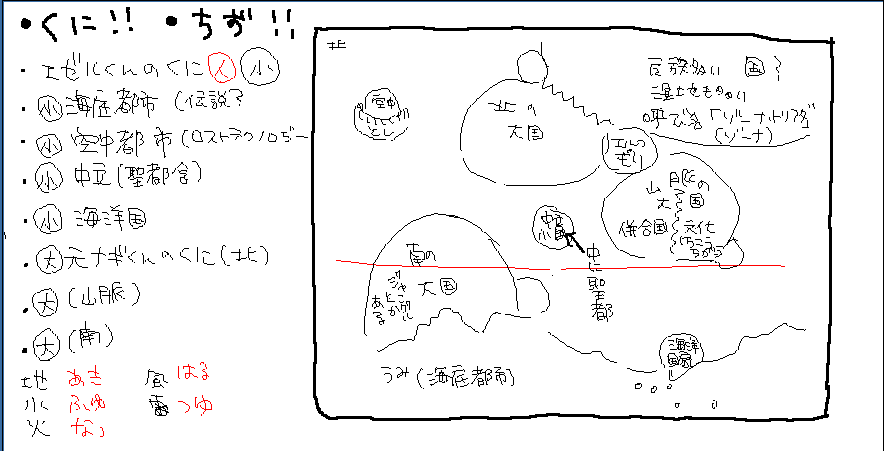 •くに!! •ちず!!
・エゼルくんのくに 人 小
・小 海底都市 (伝説?
・小 空中都市 (ロストテクノロジー
・小 中立 (聖都含)
・小 海洋国
・大 元ナギくんのくに (北)
・大 (山脈)
・大 (南)
地 あき 風 はる
水 ふゆ 雷 つゆ
火 なつ
北
空中
とし
北の
大国
民族多い 国?
湿土地もものい
呼び名「ゾーナ・トリアダ」
(ゾーナ)
エルフの
もり
山脈の
大国
併合国 文化
けっこう
ちがう
中立
小国
中に聖都
南の
大国
ジャングル
とこが
ある
うみ (海底都市)
海洋
国家